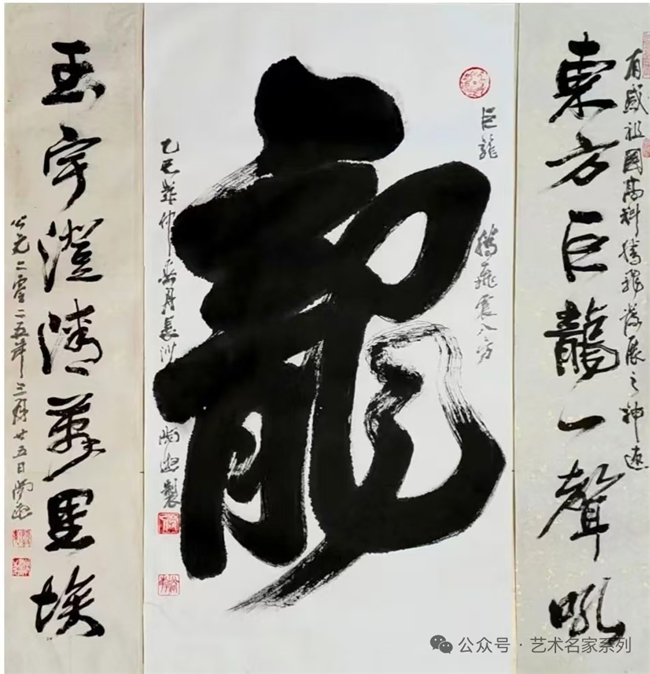 有感祖國高科發展之神速
東方巨龍一聲吼
巨龍
騰飛震八方
龍
乙巳仲月長沙
製
玉宇澄清萬里埃
公元二零二五年三月廿五日
公众号·艺术名家系列